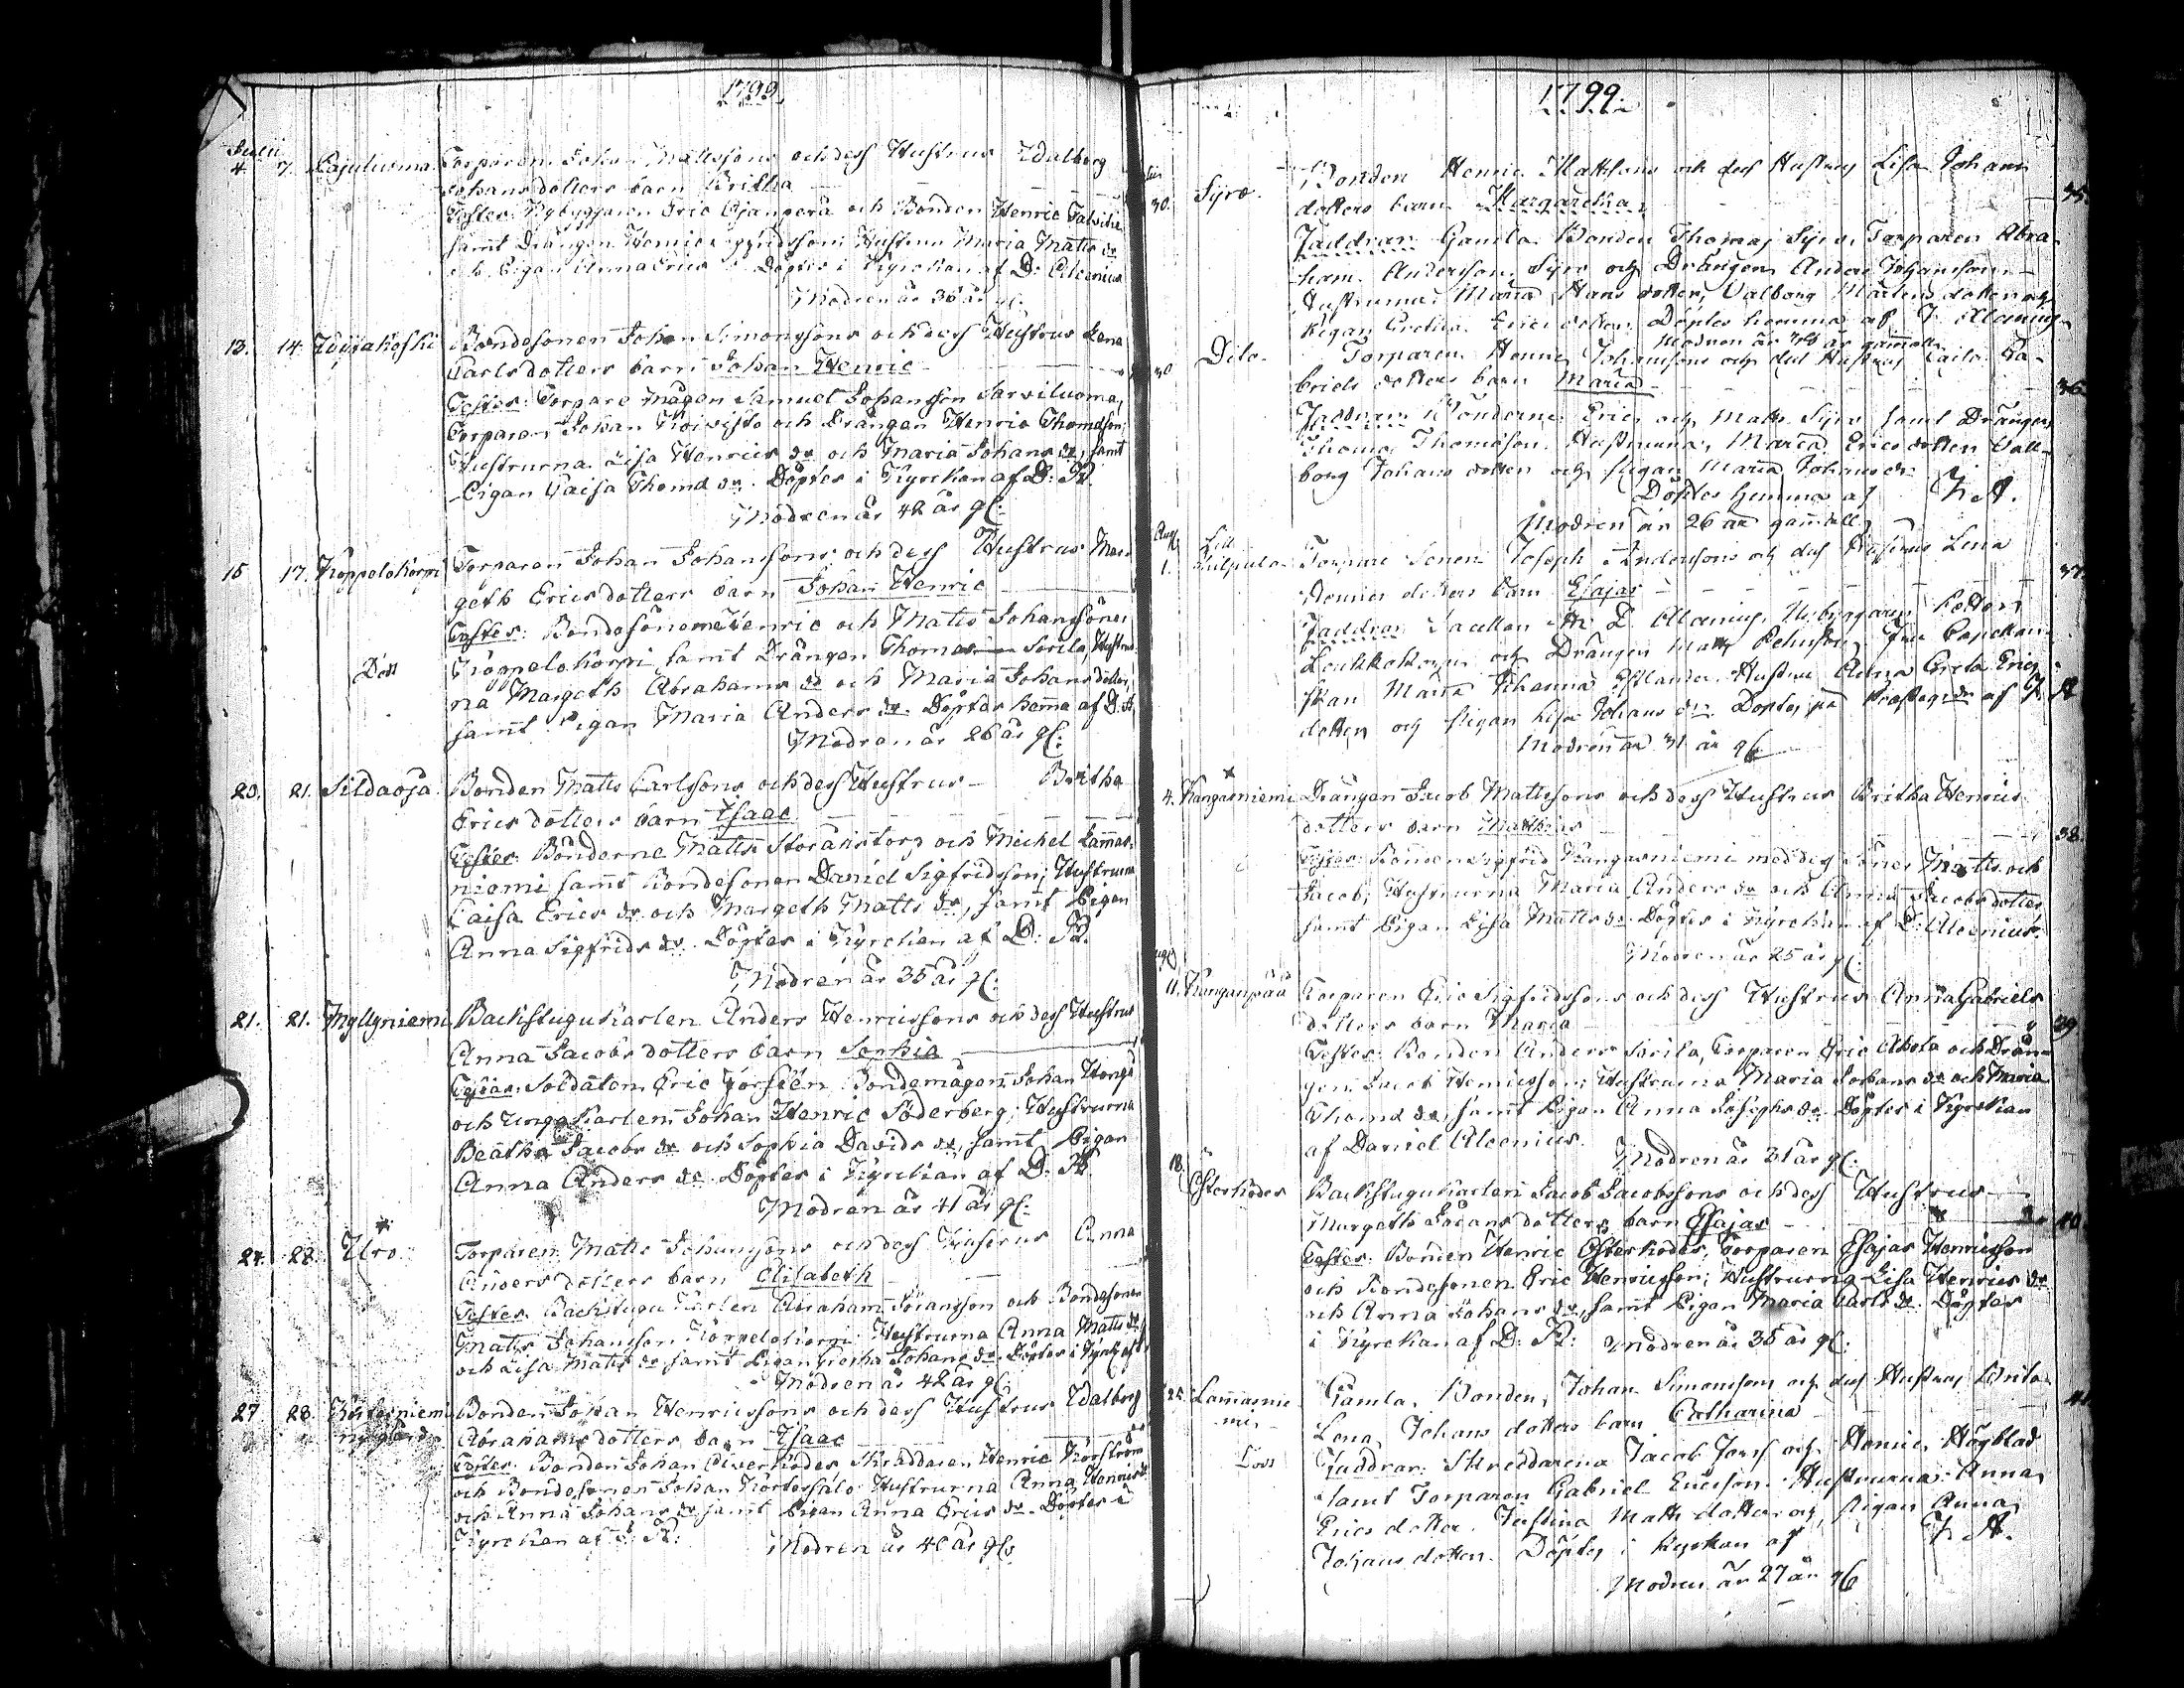 1799.
Julii
4. 7. Pajuluoma. Torparen Johan Mattssons och dess Hustrus Walborg
Johansdotters barn Britha
Testes: Nybyggaren Eric Ojanperä och Bonden Henric Talvitie
samt Drängen Henric Hustrun Maria Matts dr
Pigan Anna Erics Döptes i Kyrckan af D: Alcenius
Modren är 36 år gl:
13. 14. Koijrakoski Bondesonen Johan Simonssons och dess Hustrus Lena
Carlsdotters barn Johan Henric
Testes: Torpare mågen Samuel Johansson Sarviluoma,
Torparen Johan Koivisto och Drängen Henric Thomasson;
Hustrurna Lisa Henrics dr och Maria Johans dr, samt
Pigan Caisa Thomæ dr. Döptes i Kyrckan af D: A.
Modren är 42 år gl:
15. 17. Koppelokorpi Torparen Johan Johanssons och dess Hustrus Mar-
geth Ericsdotters barn Johan Henric
Testes: Bondesönerne Henric och Matts Johanssöner
Död Koppelokorpi samt Drängen Thomas Sorila, Hustrur-
na Margeth Abrahams dr och Maria Johansdotter,
samt Pigan Maria Anders dr. Döptes hema af D. A.
Modren är 26 år gl:
20. 21. Sildaoja. Bonden Matts Carlssons och dess Hustrus Britha
Ericsdotters barn Isaac
Testes: Bönderne Matts Storånstorp och Michel Lamas-
niemi samt Bondesonen Daniel Sigfridsson; Hustrurna
Caisa Erics dr och Margeth Matts dr, samt Pigan
Anna Sigfrids dr. Döptes i Kyrckan af D: A.
Modren är 35 år gl:
21. 21. Myllyniemi Backstugukarlen Anders Henricssons och dess Hustrus
Anna Jacobsdotters barn Sophia
Testes: Soldaten Eric Forstén, Bondemågen Johan Honga
och Ungakarlen Johan Henric Söderberg; Hustrurna
Beatha Jacobs dr och Sophia Davids dr, samt Pigan
Anna Anders dr. Döptes i Kyrckan af D. A.
Modren är 41 år gl:
24. 28. Uro. Torparen Matts Johanssons och dess Hustrus Anna
Andersdotters barn Elisabeth
Testes: Backstugu Karlen Abraham Johansson och Bondesonen
Matts Johansson Koppelokorpi: Hustrurna Anna Matts dr
och Lisa Matts dr samt Pigan Johans dr. Döptes i Kyrk: af
Modren är 42 år gl:
27. 28. Bonden Johan Henricssons och dess Hustrus Walborg
nygård Abrahamsdotters barn Isaac
Testes: Bonden Johan Skräddaren Henric Norström
och Bondesonen Johan Hustrurna Anna Henrics dr
och Anna Johans dr samt Pigan Anna Erics dr. Döptes i
Kyrckan af D: A:
Modren är 40 år gl:
1799.
30. Syrö. Bonden Henric Mattsons och dess Hustrus Lisa Johans
dotters barn Margaretha 35.
Faddrar Gamla Bonden Thomas Syrö, Torparen Abra-
ham Andersson Syrö och Drängen Anders Johansson
Hustrurna Maria Hans dotter, Valborg Mårtens dotter och
Pigan Gretha Erics dotter. Döptes hemma af J. Alcenius
Modren är 38 år gammal
30. Dito. Torparen Henric Johanssons och dess Hustrus Caisa Ga-
briels dotters barn Maria 36.
Faddrar Bönderne Eric och Matts Syrö samt Drängen
Thomas Thomasson. Hustrurna, Maria Erics dotter Vall-
borg Johans dotter och Pigan Maria Johans dr
Döptes hemma af J. A.
Modren är 26 år gammal
Aug
1. Lill Kulpula. Torpare Sonen Joseph Anderssons och dess Hustrus Lena
Henrics dotters barn Esajas 37.
Faddrar Sacellan Mr D. Alcenius, Nybyggaren
och Drängen Matts Fru Capellan-
skan Maria Johanna Hustrun Anna Greta Erics
dotter och Pigan Lisa Johans dr Döptes på af J. A
Modren är 31 år gl
4. Kangasniemi Drängen Jacob Mattssons och dess Hustrus Britha Henrics
dotters barn Mathias 38.
Testes: Bonden Sigfrid Kangasniemi med dess Söner Matts och
Jacob; Hustrurna Maria Anders dr och Anna Jacobsdotter
samt Pigan Lisa Matts dr. Döptes i Kyrckan af D: Alcenius.
Modren är 25 år gl:
11. Kanganpää Torparen Eric Sigfridssons och dess Hustrus Anna Gabriels
dotters barn Maria 39.
Testes: Bonden Anders Sorila, Torparen Eric Ahola och Drän-
gen Jacob Henricsson; Hustrurna Maria Johans dr och Maria
Thomæ dr, samt Pigan Anna Josephs dr. Döptes i Kyrckan
af Daniel Alcenius.
Modren är 31 år gl:
18. Österkodes Backstugukarlen Jacob Jacobssons och dess Hustrus
Margeth Johansdotters barn Esajas 40.
Testes: Bonden Henric Österkodes, Torparen Esajas Henricsson
och Bondesonen Eric Henricsson; Hustrurna Lisa Henrics dr
och Anna Johans dr, samt Pigan Maria Carls dr. Döptes
i Kyrckan af D: A: Modren är 38 år gl:
25. Lamasnie- Gamla Bonden, Johan Simonssons och dess Hustrus Brita
mi, Lena, Johans dotters barn Catharina 41.
Död Faddrar: Skreddarena Jacob och Henric Högblad
samt Torparen Gabriel Ericsson. Hustrurna: Anna
Erics dotter. Justina Matts dotter och Pigan Anna
Johans dotter. Döptes i Kyrkan af J. A.
Modren är 27 år gl